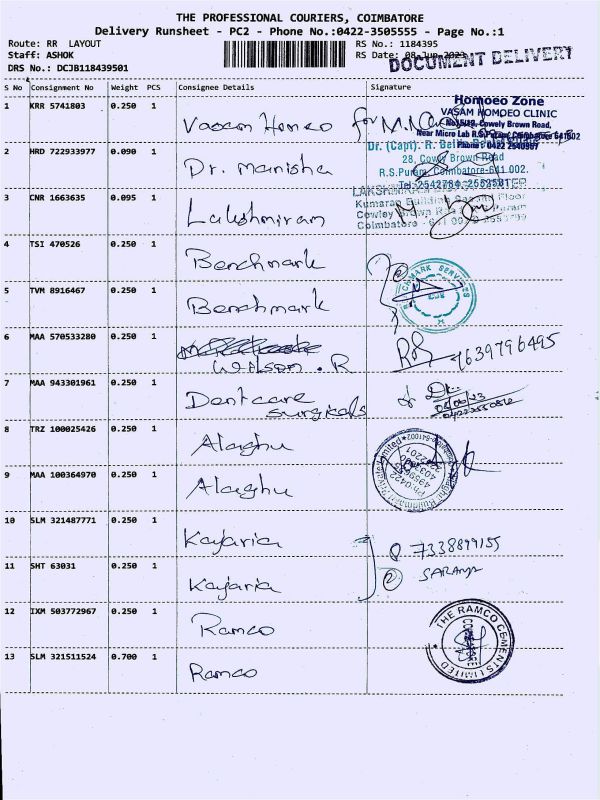 THE PROFESSIONAL COURIERS, COIMBATORE
Delivery Runsheet - PC2 - Phone No.:0422-3505555 - Page No.:1
Route: RR LAYOUT
RS No.: 1184395
Staff: ASHOK
RS Date: 08-Jun-2023
DOCUMENT DELIVERY
DRS No.: DCJB118439501
S No Consignment No Weight PCS Consignee Details Signature
1 KRR 5741803 0.250 1 Vasan Homeo for
Homoeo Zone
VASAM HOMOEO CLINIC
Cowely Brown Road,
Near Micro Lab R.S.Puram, Coimbatore 641002
Phone: 0422 2540997
2 HRD 722933977 0.090 1 Dr. Manisha
Dr. (Capt). R.
28, Cowly Brown Road
R.S.Puram, Coimbatore-641 002.
Tel:2542784, 2552581
3 CNR 1663635 0.095 1 Lakshmiram
Kumaran Building Second Floor
Cowley Brown R.S. Puram
Coimbatore - 641 002
4 TSI 470526 0.250 1 Benchmark
5 TVM 8916467 0.250 1 Benchmark
6 MAA 570533280 0.250 1 Wilson . R 9639796495
7 MAA 943301961 0.250 1 Dentcare
surgicals
8 TRZ 100025426 0.250 1 Alaghu
9 MAA 100364970 0.250 1 Alaghu
10 SLM 321487771 0.250 1 Kajaria 7338899155
11 SHT 63031 0.250 1 Kajaria SARANYA
12 IXM 503772967 0.250 1 Ramco
THE RAMCO CEMENTS LIMITED
13 SLM 321511524 0.700 1 Ramco